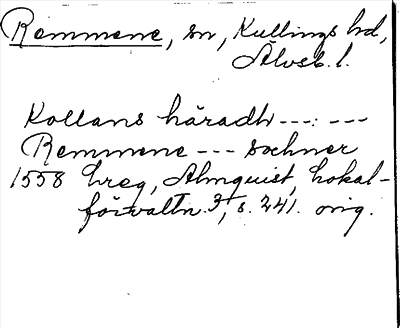 Remmene, sn, Kullings hd,
Älvsb. l.
Kollans häradh ---:---
Remmene --- sochner
1558 hreg, Almquist, Lokal-
förvaltn. 3, s. 241. orig.